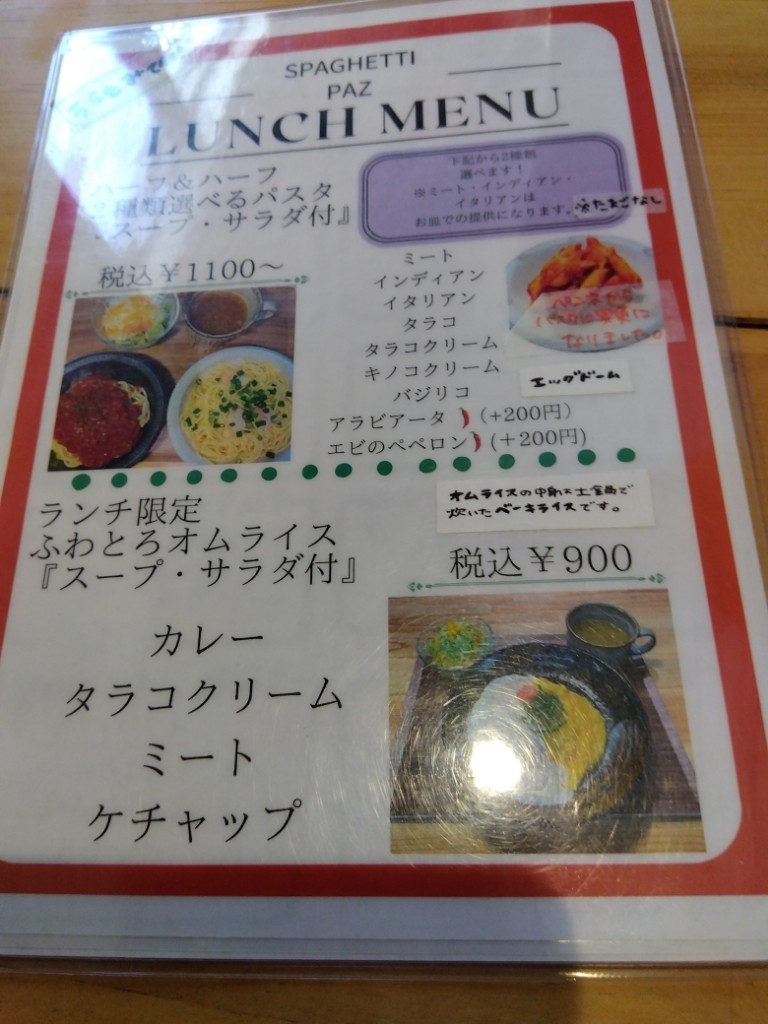 SPAGHETTI
PAZ
LUNCH MENU
ハーフ＆ハーフ
2種類選べるパスタ
『スープ・サラダ付』
税込￥1100～
下記から2種類
選べます！
※ミート・インディアン・
イタリアンは
お皿での提供になります。
※たまごなし
ミート
インディアン
イタリアン
タラコ
タラコクリーム
キノコクリーム
バジリコ
アラビアータ (+200円)
エビのペペロン (+200円)
ペンネから
パスタに変更に
なりました。
エッグドーム
ランチ限定
ふわとろオムライス
『スープ・サラダ付』
オムライスの中身は土鍋で
炊いたベーキライスです。
税込￥900
カレー
タラコクリーム
ミート
ケチャップ